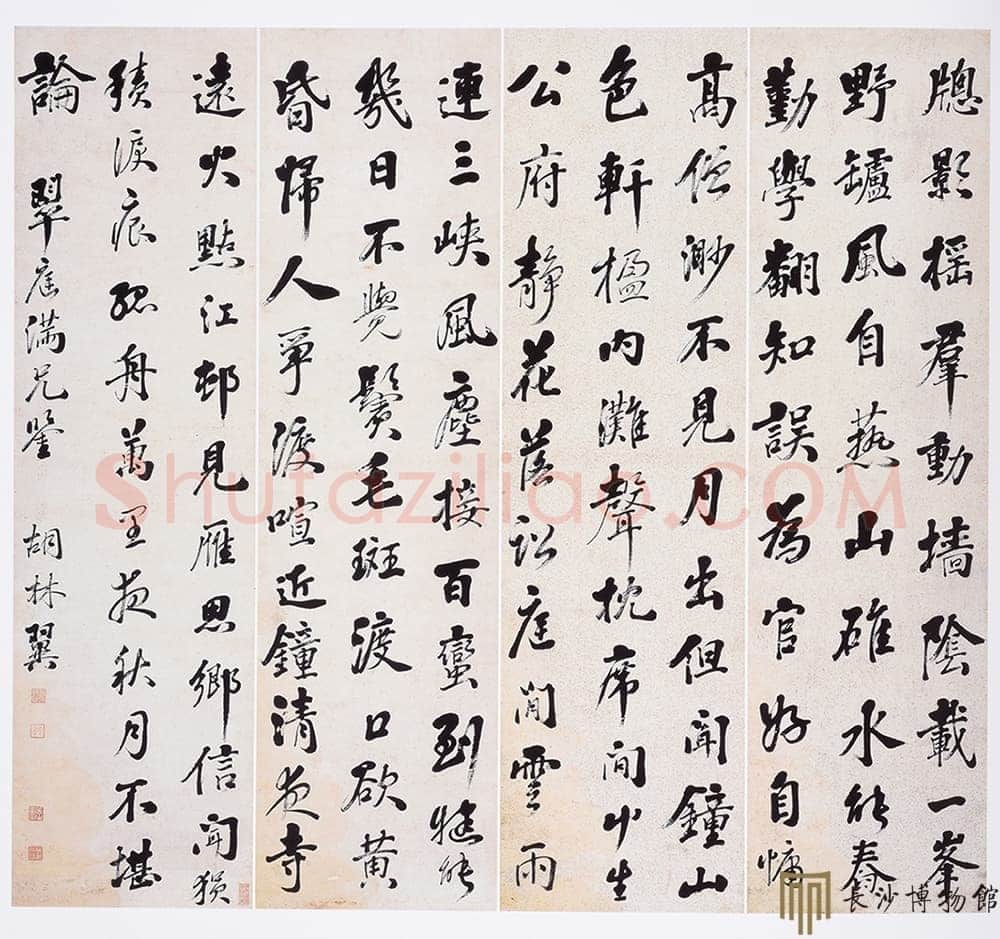 牕影搖羣動墻陰載一峯
野罏風自爇山碓水能舂
勤學翻知誤為官好自慵
高僧渺不見月出但聞鐘山
色軒楹內灘聲枕席間艸生
公府靜花落訟庭閒雲雨
連三峽風塵接百蠻到犍能
幾日不覺鬢毛斑渡口欲黃
昏歸人爭渡喧近鐘清夜寺
遠火點江邨見雁思鄉信聞猿
積淚痕孤舟萬里夜秋月不堪
論
翠滿兄鑒
胡林翼
Shufaziliao.COM
長沙博物館